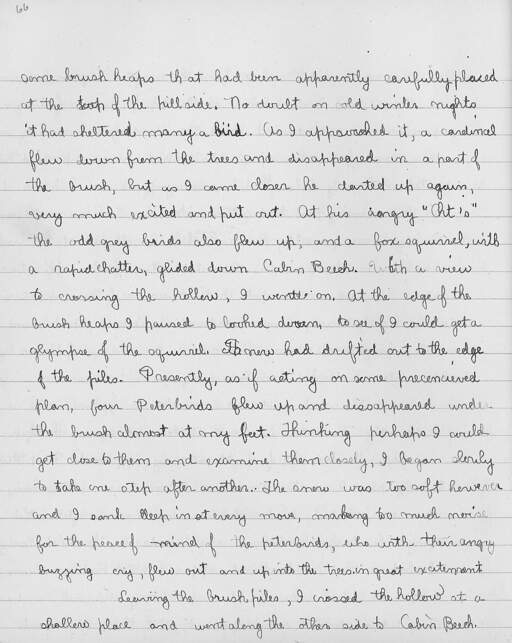 66
some brush heaps that had been apparently carefully placed
at the top of the hillside. No doubt on old winter nights
it had sheltered many a bird. As I approached it, a cardinal
flew down from the trees and disappeared in a part of
the brush, but as I came closer he darted up again,
very much excited and put out. At his angry "Cht's"
the odd grey birds also flew up, and a fox squirrel, with
a rapid chatter, glided down Cabin Beech. With a view
to crossing the hollow, I went on. At the edge of the
brush heaps I paused to looked down, to see if I could get a
glympse of the squirrel. Snow had drifted out to the edge
of the piles. Presently, as if acting on some preconceived
plan, four Peterbirds flew up and disappeared under
the brush almost at my feet. Thinking perhaps I could
get close to them and examine them closely, I began slowly
to take one step after another. The snow was too soft however
and I sank deep in at every move, making too much noise
for the peace of mind of the peterbirds, who with their angry
buzzing cry, flew out and up into the trees in great excitement
Leaving the brush piles, I crossed the hollow at a
shallow place and went along the other side to Cabin Beech.